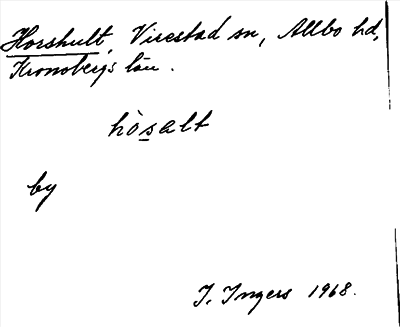 Horshult, Virestad sn, Allbo hd,
Kronobergs län.
hòsalt
by
I. Ingers 1968.